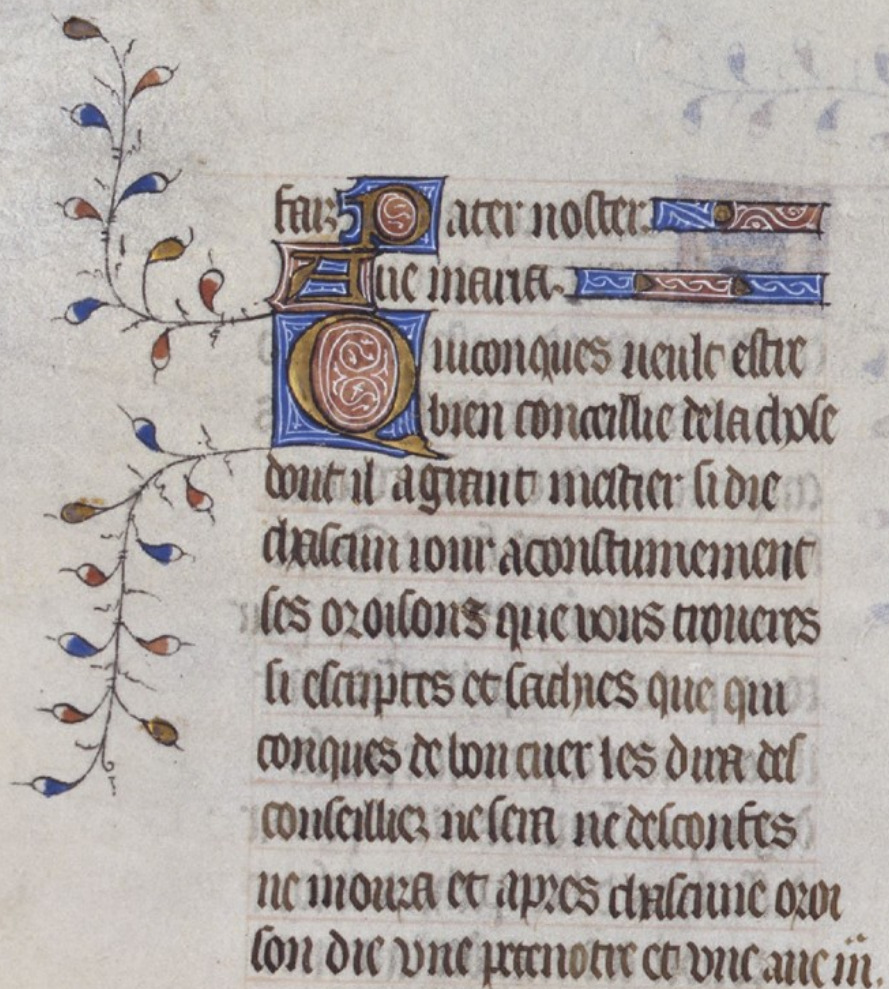 faiz Pater noster.
Aue maria.
Quiconques ueult estre
bien conceillie de la chose
dont il a grant mestier si die
chascun iour aconstumement
ses oroisons que vous troueres
si escriptes et sachies que qui
conques de bon cuer les dira des
conseilliez ne sera ne desconfes
ne moura et apres chascune oroi
son die vne patenotre et vne aue m̃.